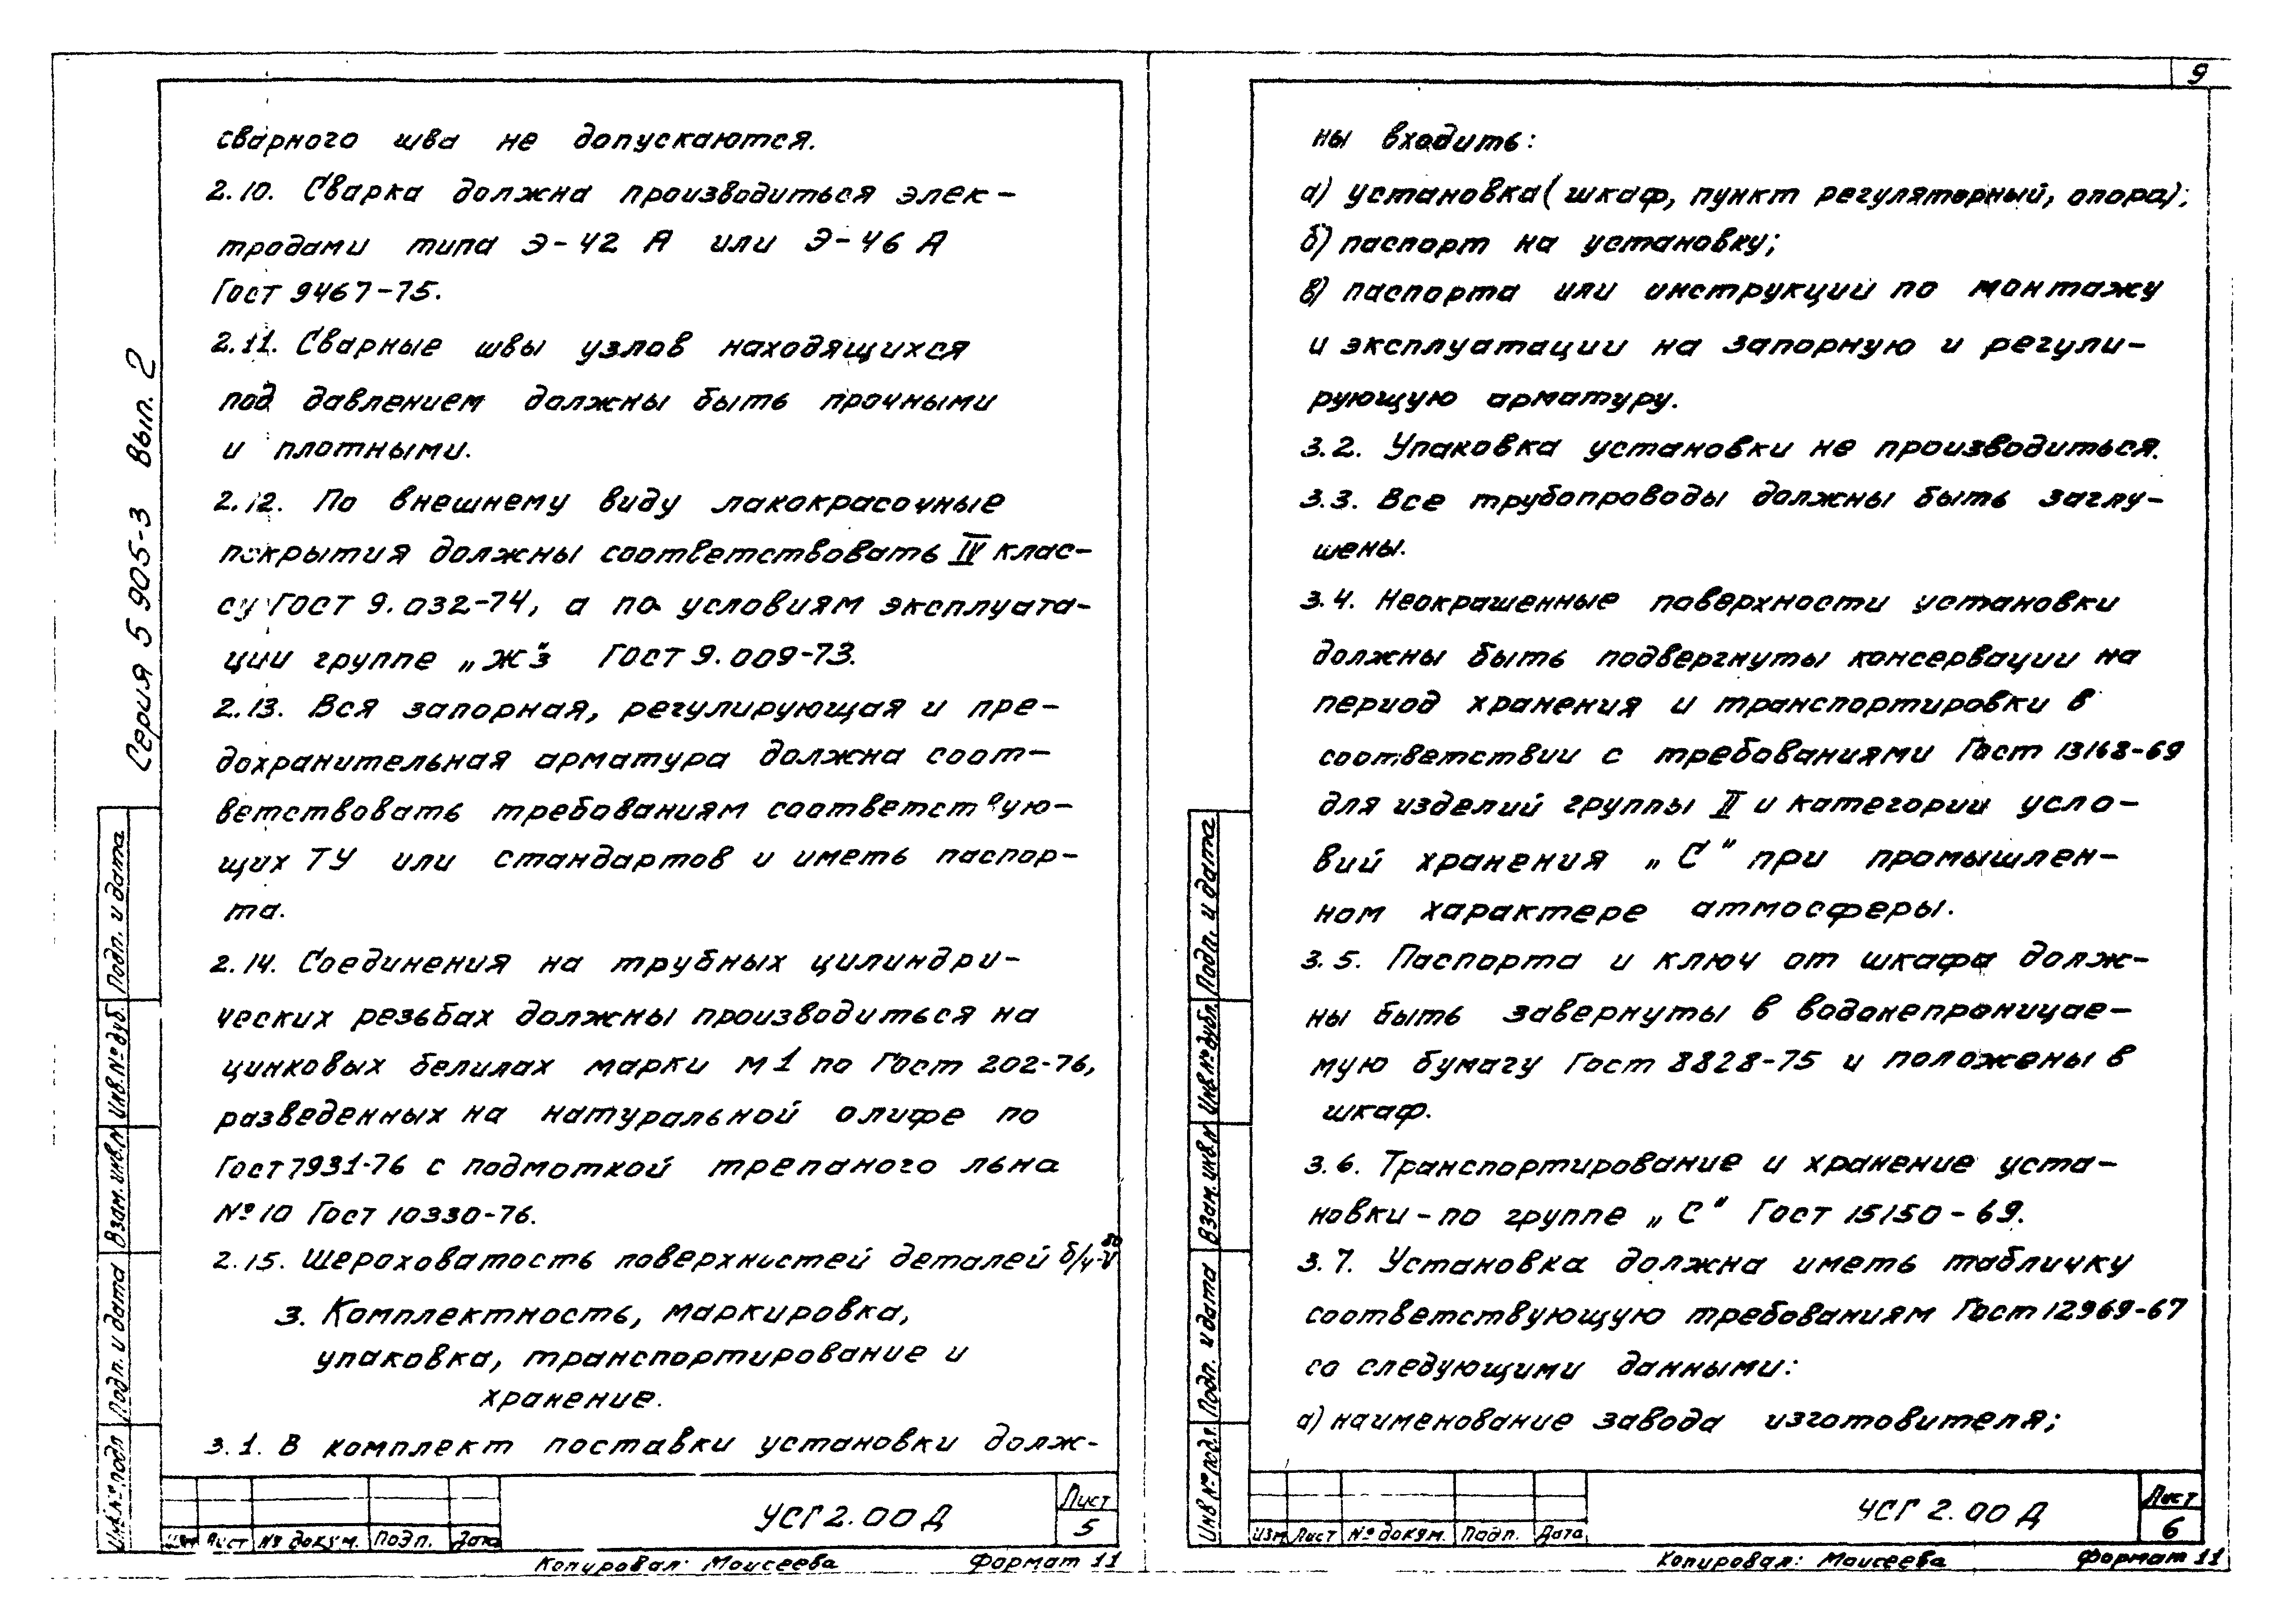 сварного шва не допускаются.
2.10. Сварка должна производиться элек-
тродами типа Э-42 А или Э-46 А
Гост 9467-75.
2.11. Сварные швы узлов находящихся
под давлением должны быть прочными
и плотными.
2.12. По внешнему виду лакокрасочные
покрытия должны соответствовать IV клас-
су ГОСТ 9.032-74, а по условиям эксплуата-
ции группе „Ж"з ГОСТ 9.009-73.
2.13. Вся запорная, регулирующая и пре-
дохранительная арматура должна соот-
ветствовать требованиям соответствую-
щих ТУ или стандартов и иметь паспор-
та.
2.14. Соединения на трубных цилиндри-
ческих резьбах должны производиться на
цинковых белилах марки М1 по Гост 202-76,
разведенных на натуральной олифе по
Гост 7931-76 с подмоткой трепаного льна
№10 Гост 10330-76.
2.15. Шероховатость поверхностей деталей б/ч 80
3. Комплектность, маркировка,
упаковка, транспортирование и
хранение.
3.1. В комплект поставки установки долж-
Серия 5 905-3 Вып. 2
Подп. и дата
Инв.№ дубл.
Взам. инв.№
Подп. и дата
Инв.№ подл
Изм Лист № докум. Подп. Дата
УСГ 2.00 Д
Лист
5
Копировал: Моисеева Формат 11
9
ны входить:
а) установка (шкаф, пункт регуляторный, опора);
б) паспорт на установку;
в) паспорта или инструкции по монтажу
и эксплуатации на запорную и регули-
рующую арматуру.
3.2. Упаковка установки не производиться.
3.3. Все трубопроводы должны быть заглу-
шены.
3.4. Неокрашенные поверхности установки
должны быть подвергнуты консервации на
период хранения и транспортировки в
соответствии с требованиями Гост 13168-69
для изделий группы II и категории усло-
вий хранения „С" при промышлен-
ном характере атмосферы.
3.5. Паспорта и ключ от шкафа долж-
ны быть завернуты в водонепроницае-
мую бумагу Гост 8828-75 и положены в
шкаф.
3.6. Транспортирование и хранение уста-
новки - по группе „С" Гост 15150-69.
3.7. Установка должна иметь табличку
соответствующую требованиям Гост 12969-67
со следующими данными:
а) наименование завода изготовителя;
Подп. и дата
Инв.№ дубл.
Взам. инв.№
Подп. и дата
Инв № подл.
Изм Лист № докум. Подп. Дата
УСГ 2.00 Д
Лист
6
Копировал: Моисеева Формат 11